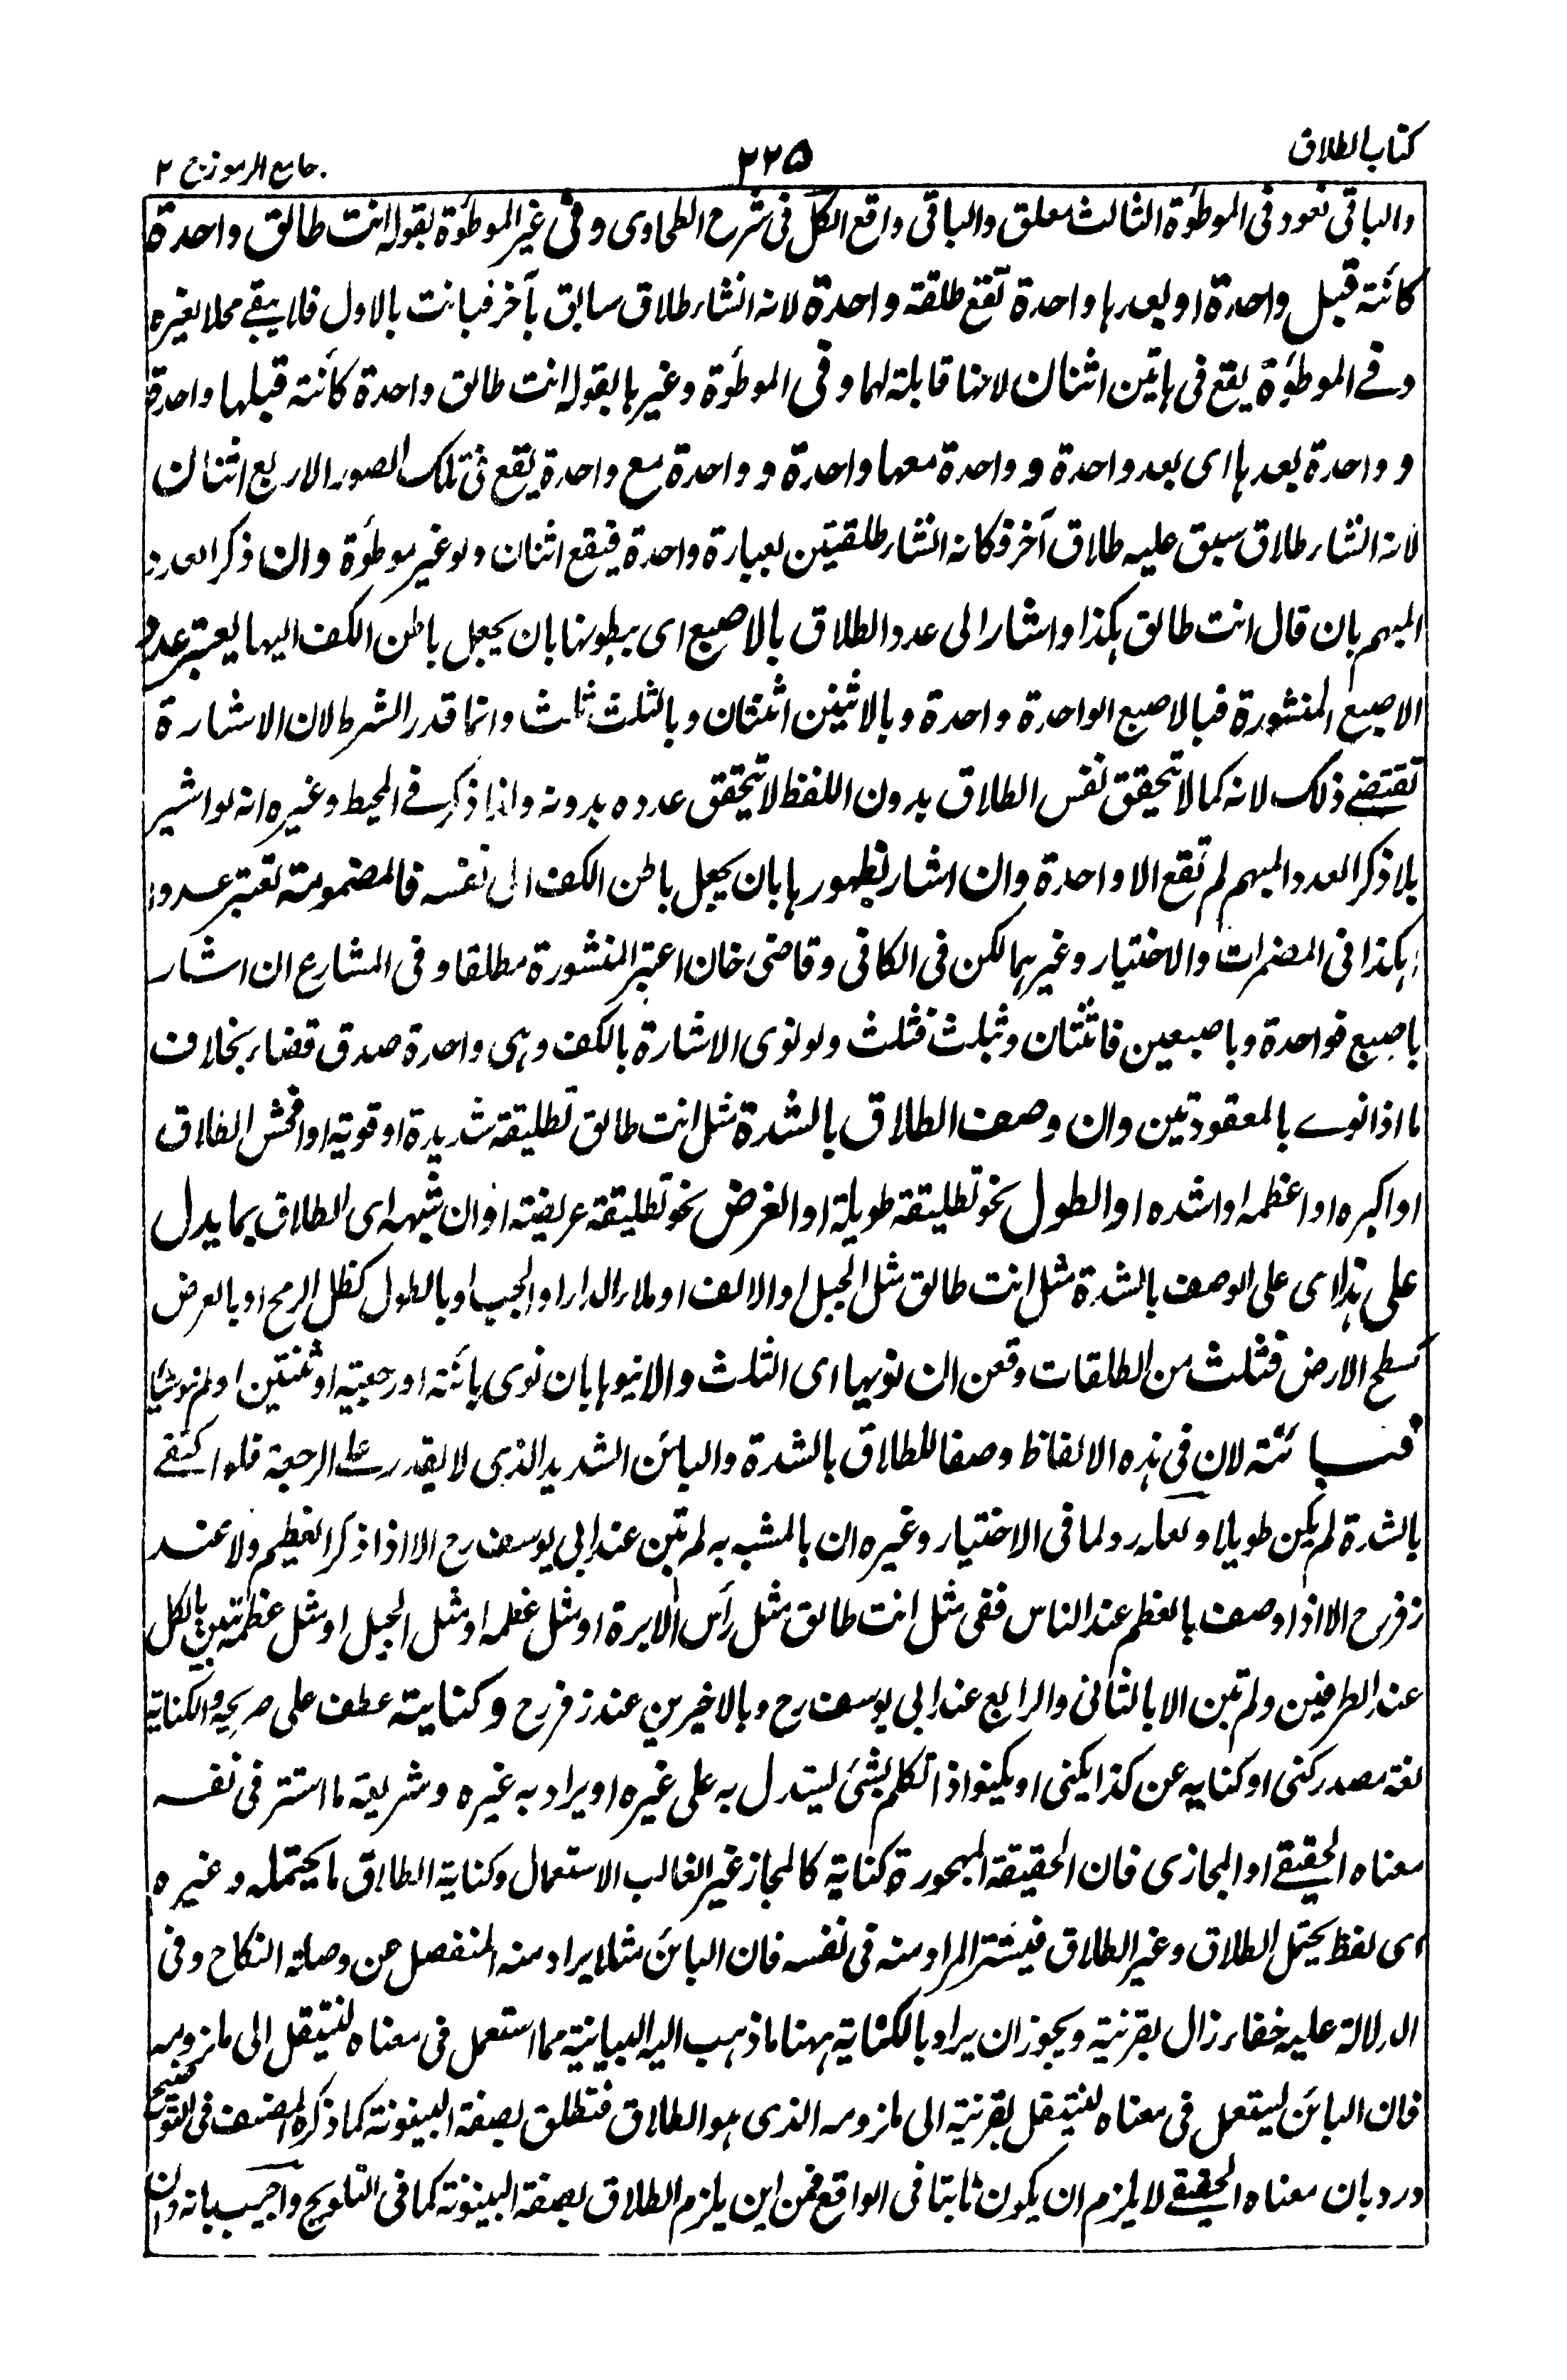 كتاب الطلاق
٢٢٥
جامع الرموز ج ٢
والباقى نعود فى الموطوءة الثالث معلق والباقى واقع الكل فى شرح الطحاوى وفى غير الموطوءة بقوله انت طالق واحدة
كائنة قبل واحدة او بعدها واحدة تقع طلقة واحدة لانه انشاء طلاق سابق بآخر فبانت بالاول فلا يبقى محلا لغيره
وفى الموطوءة يقع فى هاتين اثنتان لانها قابلة لهما وفى الموطوءة وغيرها بقوله انت طالق واحدة كائنة قبلها واحدة
و واحدة بعدها اى بعد واحدة و واحدة معها واحدة و واحدة مع واحدة يقع فى تلك الصور الاربع اثنتان
لانه انشاء طلاق سبق عليه طلاق آخر فكانه انشاء طلقتين بعبارة واحدة فيقع اثنان ولو غير موطوءة وان ذكر العدد
المبهم بان قال انت طالق هكذا واشار الى عدد الطلاق بالاصبع اى ببطونها بان يجعل باطن الكف اليها يعتبر عدد
الاصبع المنشورة فبالاصبع الواحدة واحدة وبالاثنين اثنتان وبالثلث ثلث وانما قدر الشرط لان الاشارة
تقتضى ذلك لانه كما لا تحقق نفس الطلاق بدون اللفظ لا يتحقق عدده بدونه ولذا ذكر فى المحيط وغيره انه لو اشير
بلا ذكر العدد المبهم لم تقع الا واحدة وان اشار بظهورها بان يجعل باطن الكف الى نفسه فالمضمومة تعتبر عددا
هكذا فى المضمرات والاختيار وغيرهما لكن فى الكافى وقاضى خان اعتبر المنشورة مطلقا وفى المشارع ان اشار
باصبع فواحدة وباصبعين فاثنتان وبثلث فثلث ولو نوى الاشارة بالكف وهى واحدة صدق قضاء بخلاف
ما اذا نوى بالمعقودتين وان وصف الطلاق بالشدة مثل انت طالق تطليقة شديدة او قوية او افحش الطلاق
او اكبره او اعظمه او اشده او الطول نحو تطليقة طويلة او العرض نحو تطليقة عريضة او ان شبهه اى الطلاق بما يدل
على هذا اى على الوصف بالشدة مثل انت طالق مثل الجبل او الالف او ملاء الدار او الجب او بالطول كظل الرمح او بالعرض
كسطح الارض فثلث من الطلقات وقعن ان نويها اى الثلث والا نيوها بان نوى بائنة او رجعية او ثنتين او لم ينو شيئا
فبائنة لان فى هذه الالفاظ وصفا للطلاق بالشدة والبائن الشديد الذى لا يقدر على الرجعة فلو اكتفى
بالشدة لم يكن طويلا ولعله رد لما فى الاختيار وغيره ان بالمشبه به لم تبن عند ابى يوسف رح الا اذا ذكر العظيم ولا عند
زفر رح الا اذا وصف بالعظم عند الناس ففى مثل انت طالق مثل رأس الابرة او مثل عظمه او مثل الجبل او مثل عظمه تبين بالكل
عند الطرفين ولم تبن الا بالثانى والرابع عند ابى يوسف رح وبالاخيرين عند زفر رح وكنايته عطف على صريحه والكناية
لغة مصدر كنى او كناية عن كذا يكنى او يكنو اذا تكلم بشئ ليستدل به على غيره او يراد به غيره وشريعة ما استتر فى نفسه
معناه الحقيقى او المجازى فان الحقيقة المهجورة كناية كالمجاز غير الغالب الاستعمال وكناية الطلاق ما يحتمله وغيره
اى لفظ يحتمل الطلاق وغير الطلاق فيستتر المراد منه فى نفسه فان البائن مثلا يراد منه المنفصل عن وصلة النكاح وفى
الدلالة عليه خفاء زال بقرينة ويجوز ان يراد بالكناية ههنا ما ذهب اليه البيانية مما استعمل فى معناه لينتقل الى ملزومه
فان البائن ليستعمل فى معناه لينتقل بقرينة الى ملزومه الذى هو الطلاق فتطلق بصفة البينونة كما ذكره المصنف فى التوضيح
ورد بان معناه الحقيقى لا يلزم ان يكون ثابتا فى الواقع فمن اين يلزم الطلاق بصفة البينونة كما فى التلويح واجيب بانه وان